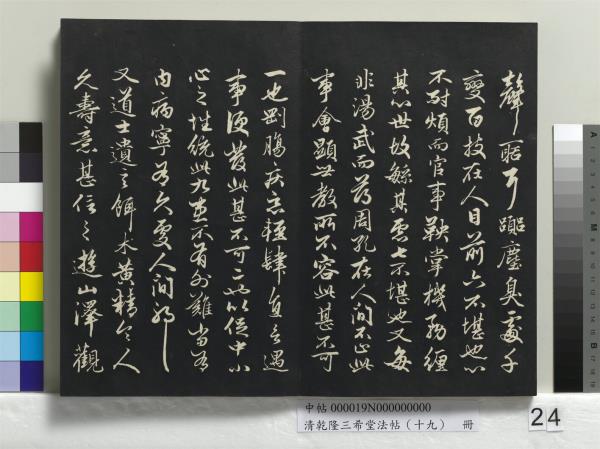 聲聒耳囂塵臭處千
變百技在人目前六不堪也心
不耐煩而官事鞅掌機務纏
其心世故繁其慮七不堪也又每
非湯武而薄周孔在人間不止此
事會顯世教所不容此甚不可
一也剛腸疾惡輕肆直言遇
事便發此甚不可二也以促中小
心之性統此九患不有外難當有
內病寧可久處人間邪
又道士遺言餌朮黃精令人
久壽意甚信之遊山澤觀
中帖 000019N000000000
清乾隆三希堂法帖（十九） 冊
24